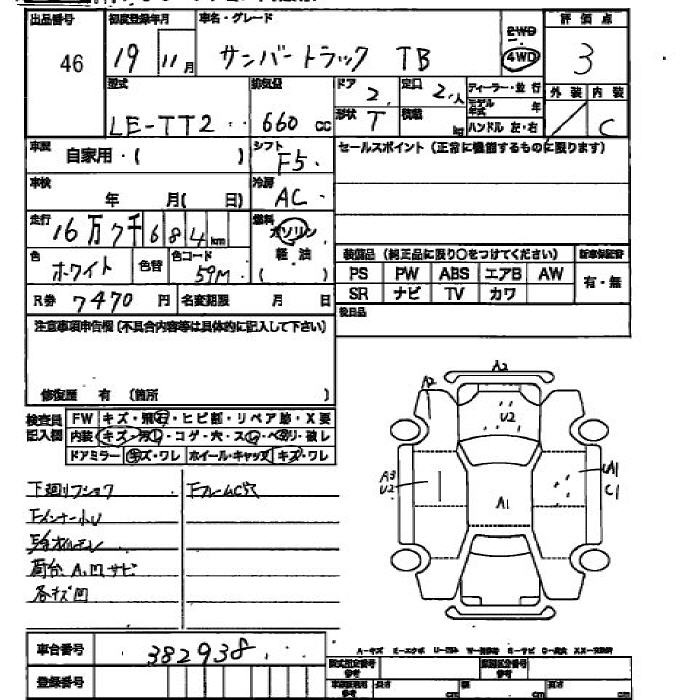 出品番号 46
初度登録年月 19 11月
車名・グレード サンバートラック TB
2WD 4WD
評価点 3
型式 LE-TT2
排気量 660 cc
ドア 2
定員 2人
ディーラー・並行
モデル年式 年
ハンドル 左・右
形状 T
積載 kg
外装 内装 C
車歴 自家用・( )
シフト F5
セールスポイント (正常に機能するものに限ります)
車検 年 月( 日)
冷房 AC
走行 16万7千684km
燃料 ガソリン 軽油 ( )
色 ホワイト 色替 色コード 59M
装備品 (純正品に限り○をつけてください) 新車保証書
PS PW ABS エアB AW 有・無
SR ナビ TV カワ
R券 7470円 名変期限 月 日
後日品
注意事項申告欄 (不具合内容等は具体的に記入して下さい)
修復歴 有 (箇所 )
検査員記入欄
FW キズ・飛石・ヒビ割・リペア跡・X要
内装 キズ・汚れ・コゲ・穴・スレ・ヘタリ・破レ
ドアミラー キズ・ワレ ホイール・キャップ キズ・ワレ
下廻リフショク FフレームC穴
Fインナー小U
荷台A,凹サビ
各キズ凹
A2
A2
U2
A3
U2
A1
A1
C1
車台番号 382938
登録番号